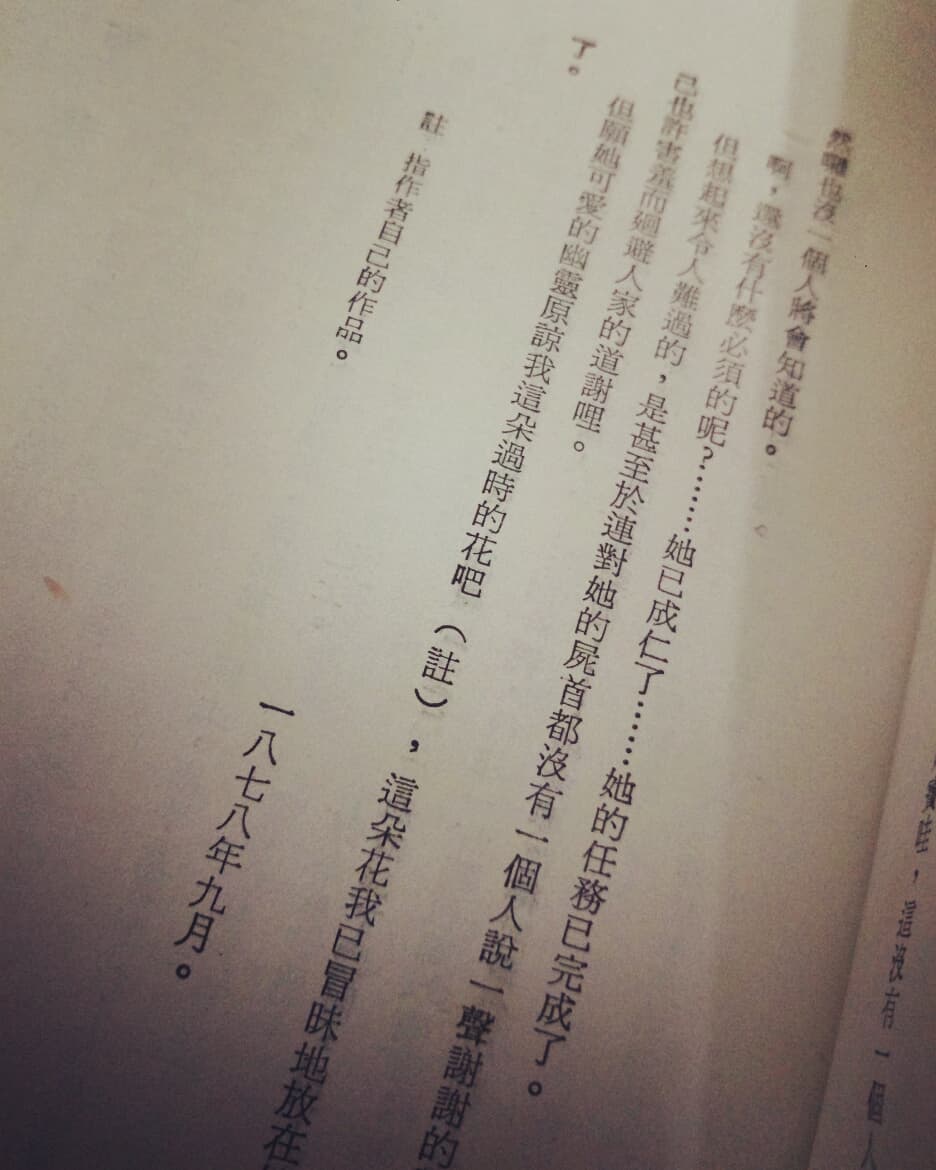 這沒有一個人
然囉也沒一個人將會知道的。
啊，還沒有什麼必須的呢？……她已成仁了……她的任務已完成了。
但想起來令人難過的，是甚至於連對她的屍首都沒有一個人說一聲謝謝的
己也許害羞而廻避人家的道謝哩。
但願她可愛的幽靈原諒我這朵過時的花吧（註），這朵花我已冒昧地放在
了。
註　指作者自己的作品。
一八七八年九月。